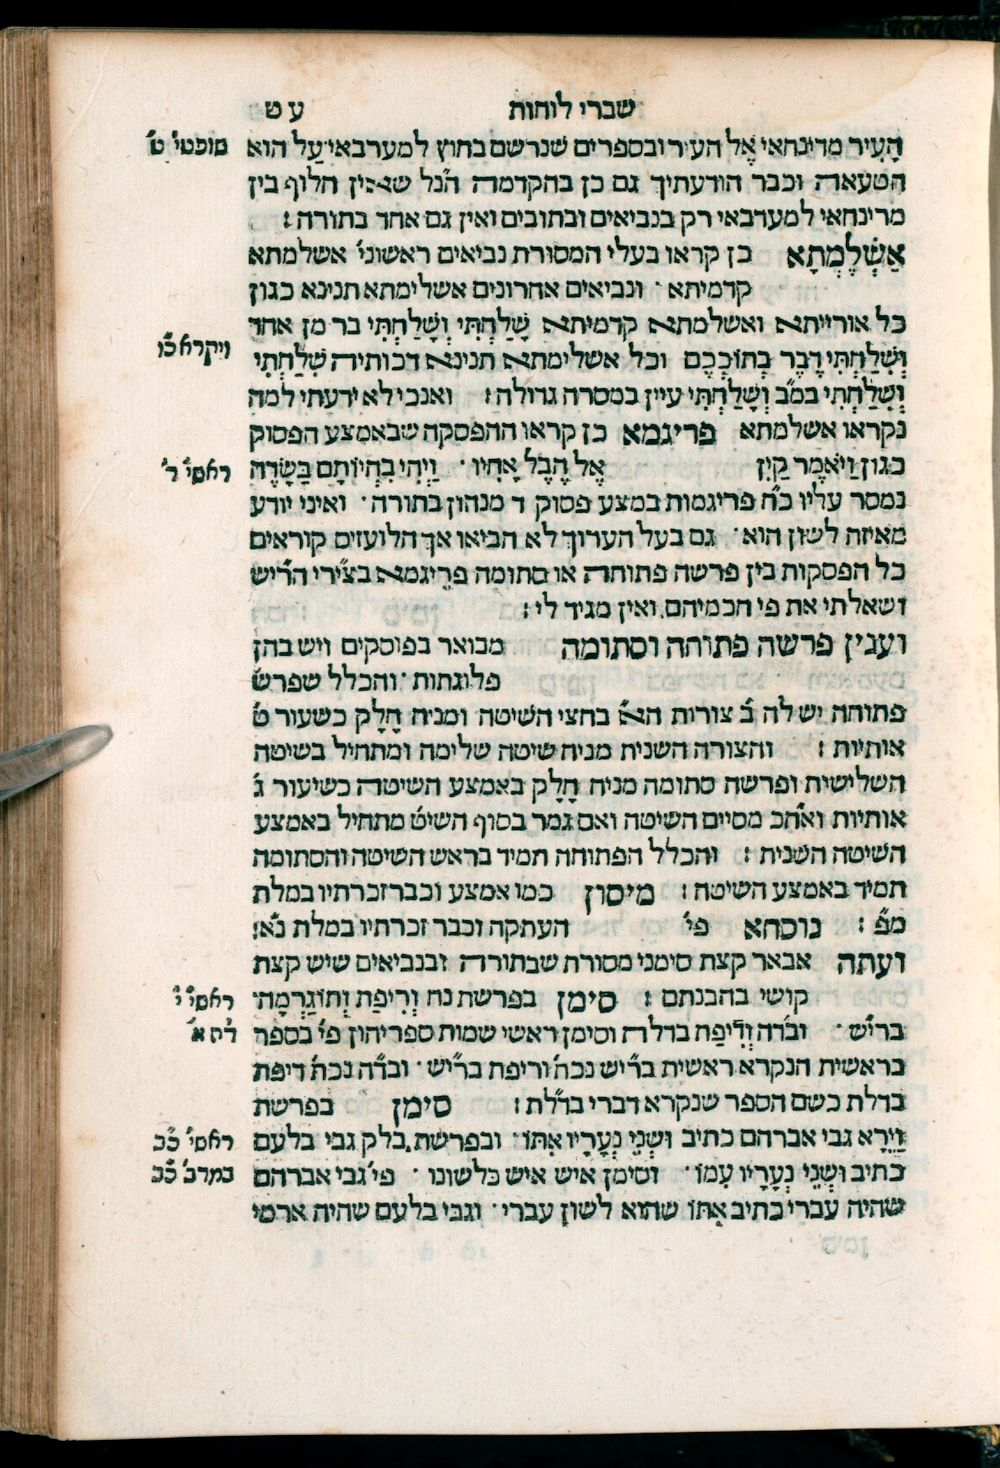 שברי לוחות עט
הָעִיר מדינחאי אֶל העיר ובספרים שנרשם בחוץ למערבאי עַל הוא
שופטי׳ ט׳
הטעאה וכבר הודעתיך גם כן בהקדמה הנ״ל שאין חלוף בין
מדינחאי למערבאי רק בנביאים ובתובים ואין גם אחד בתורה :
אַשְׁלֶמְתָא כן קראו בעלי המסורת נביאים ראשוני׳ אשלמתא
קדמיתא ׳ ונביאים אחרונים אשלימתא תנינא כגון
כל אורייתא ואשלמתא קדמיתא שָׁלַחְתִּי וְשָׁלַחְתִּי בר מן אחד
ויקרא כ״ו
וְשִׁלַּחְתִּי דֶבֶר בְּתוֹכְכֶם וכל אשלימתא תנינא דכותיה שִׁלַּחְתִּי
וְשִׁלַּחְתִּי במ״ב וְשָׁלַחְתִּי עיין במסרה גדולה : ואנכי לא ידעתי למה
נקראו אשלמתא פריגמא כן קראו ההפסקה שבאמצע הפסוק
כגון וַיֹּאמֶר קַיִן אֶל הֶבֶל אָחִיו ׳ וַיְהִי בִהְיוֹתָם בַּשָּׂדֶה
ראשי׳ ד׳
נמסר עליו כ״ח פריגמות במצע פסוק ד מנהון בתורה ׳ ואיני יודע
מאיזה לשון הוא ׳ גם בעל הערוך לא הביאו אך הלועזים קוראים
כל הפסקות בין פרשה פתוחה או סתומה פְרֵיגמא בצירי הרי״ש
ושאלתי את פי חכמיהם ואין מגיד לי :
וענין פרשה פתוחה וסתומה מבואר בפוסקים ויש בהן
פלוגתות ׳ והכלל שפרש׳
פתוחה יש לה ב׳ צורות הא׳ בחצי השיטה ומניח חָלָק כשעור ט׳
אותיות : והצורה השנית מניח שיטה שלימה ומתחיל בשיטה
השלישית ופרשה סתומה מניח חָלָק באמצע השיטה כשיעור ג׳
אותיות ואח״כ מסיים השיטה ואם גמר בסוף השיט׳ מתחיל באמצע
השיטה השנית : והכלל הפתוחה תמיד בראש השיטה והסתומה
תמיד באמצע השיטה : מיסון כמו אמצע וכבר זכרתיו במלת
מ״פ : נוסחא פי׳ העתקה וכבר זכרתיו במלת נ״א :
ועתה אבאר קצת סימני מסורת שבתורה ובנביאים שיש קצת
קושי בהבנתם : סימן בפרשת נח וְרִיפַת וְתוֹגַרְמָה ׳
ראשי׳ י׳
ברי״ש ׳ ובד״ה וְדִיפַת בדלת וסימן ראשי שמות ספריהון פי׳ בספר
ד״ה א׳
בראשית הנקרא ראשית ברי״ש נכת׳ וריפת ברי״ש ׳ ובד״ה נכת׳ דיפת
בדלת כשם הספר שנקרא דברי בדל״ת : סימן בפרשת
וַיֵּרָא גבי אברהם כתיב וּשְׁנֵי נְעָרָיו אִתּוֹ ׳ ובפרשת בלק גבי בלעם
ראשי׳ כ״ב
כתיב וּשְׁנֵי נְעָרָיו עִמּוֹ ׳ וסימן איש איש כלשונו ׳ פי׳ גבי אברהם
במדב׳ כ״ב
שהיה עברי כתיב אִתּוֹ שהוא לשון עברי ׳ וגבי בלעם שהיה ארמי